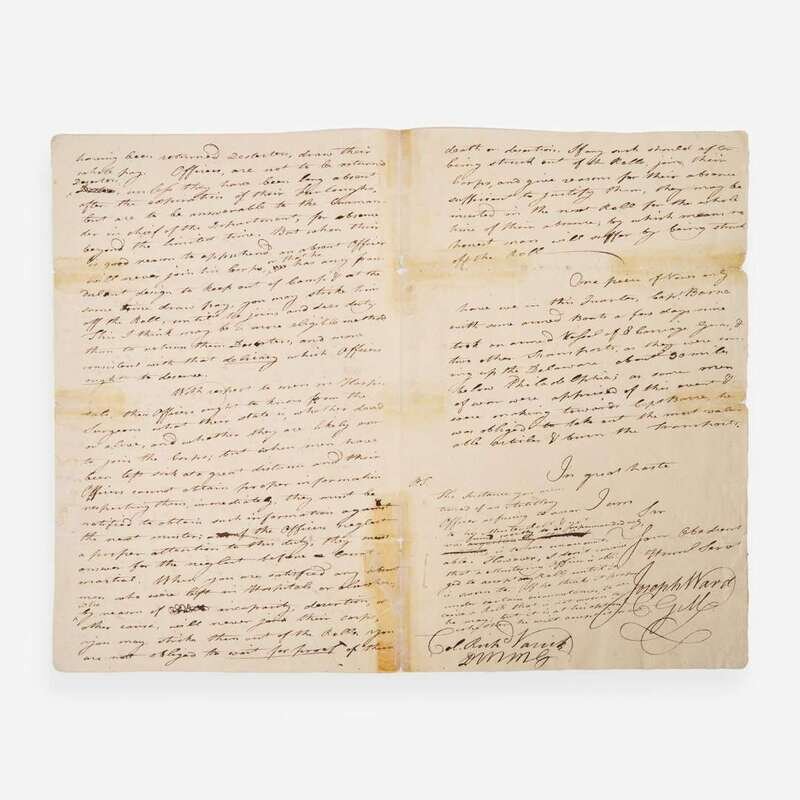 having been returned Deserters, draw their
whole pay. Officers, are not to be returned
Deserters, unless they have been long absent
after the expiration of their furloughs,
but are to be answerable to the Comman-
der in chief of the Department, for absence
beyond the limited time. But when there
is good reason to apprehend an absent Officer
will never join his Corps, or that he has any frau-
dulent design to keep out of Camp, & at the
same time draw pay, you may strike him
off the Roll, until he joins and does duty
This I think may be a more eligible method
than to return them Deserters, and more
consistent with that delicacy which Officers
ought to deserve.
With respect to men in Hospi-
tals, their Officers ought to know from the
Surgeons what their state is, whether dead
or alive, and whether they are likely
to join the Corps, but when men have
been left sick at a great distance and their
Officers cannot obtain proper information
respecting them immediately, they must be
notified to obtain such information against
the next muster; if the Officers neglect
a proper attention to this duty, they must
answer for the neglect before a Court
martial. When you are satisfied any absent
men, who were left in Hospitals or elsewhere,
by reason of incapacity, desertion, or
other cause, will never join their corps,
you may strike them out of the Rolls. You
are not obliged to wait for proof of their
death or desertion. If any such should after
being struck out of the Rolls, join their
Corps, and give reasons for their absence
sufficient to justify them, they may be
inserted in the next Roll for the whole
time of their absence; by which means no
honest man will suffer by being struck
off the Roll
One piece of News only
have we in this Quarter, Capt. Barre
with some armed Boats a few days since
took an armed Vessel of 8 Carriage Guns, &
two other Transports, as they were com-
ing up the Delaware about 30 miles
below Philadelphia; as some men
of war were apprised of this event &
were making towards Capt. Barre, he
was obliged to take out the most valu-
able articles & burn the transports.
In great haste
I am
Sir
Your Obedient
Humbl Servt
Joseph Ward
C G M
The instance you mentioned of
Officer refusing to swear
able. However, I don't
Col. Richd Varick
D M M G